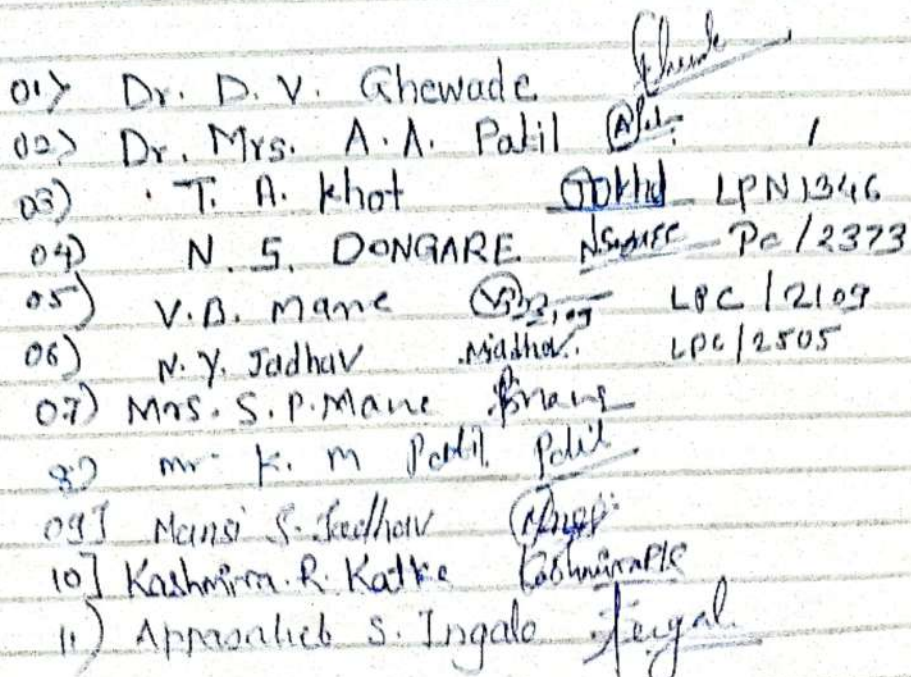 01) Dr. D. V. Ghewade
02) Dr. Mrs. A. A. Patil
03) T. A. Khot LPN 1346
04) N. S. DONGARE Pc / 2373
05) V. B. Mane LPC / 2109
06) N. Y. Jadhav NJadhav. LPC / 2505
07) Mrs. S. P. Mane
8) mr. K. m Patil Patil
09] Mansi S. Jadhav
10] Kashmira. R. Katke
11) Appasaheb S. Ingale